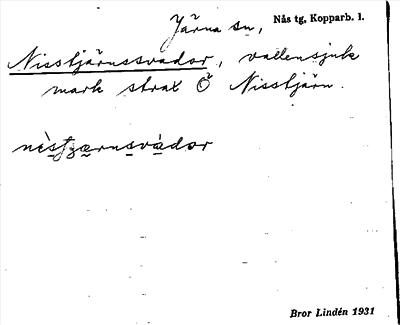 Järna sn, Nås tg, Kopparb. l.
Nisstjärnssvador, vattensjuk
mark strax Ö Nisstjärn.
nìstjærnsvádor
Bror Lindén 1931